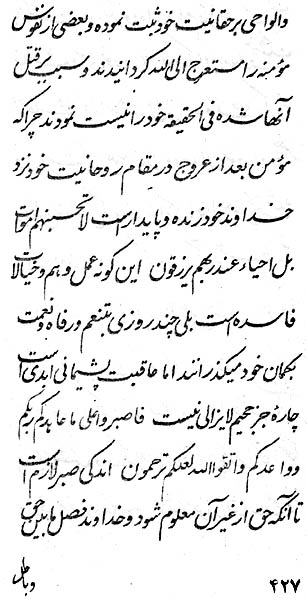 والواحی بر حقانیت خود ثبت نموده و بعضی از نفوس
مؤمنه را مستعرج الی الله گردانیدند و سبب بر قتل
آنها شده فی الحقیقه خود را نیست نمودند چرا که
مؤمن بعد از عروج در مقام روحانیت خود نزد
خداوند خود زنده و پایدار است لا تحسبنهم امواتا
بل احیاء عند ربهم یرزقون این گونه عمل و هم و خیالات
فاسده است بلی چند روزی بتنعم و رفاه و نعمت
بگمان خود میگذرانند اما عاقبت پشیمانی ابدی است
چارهٔ جز جحیم لایزالی نیست فاصبروا علی ما عاهدکم ربکم
و واعدکم و اتقوا الله لعلکم ترحمون اندکی صبر لازم است
تا آنکه حق از غیر آن معلوم شود و خداوند فصل ما بین حق
و باطل
۴۲۷